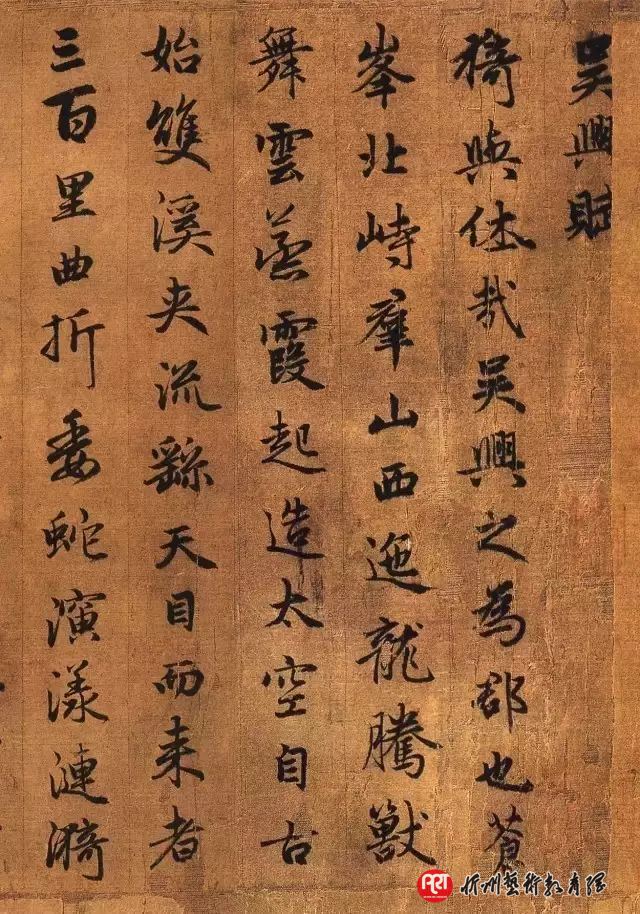 吳興賦
猗與休哉吳興之為郡也蒼
峯北峙羣山西迤龍騰獸
舞雲蒸霞起造太空自古
始雙溪夾流繇天目而來者
三百里曲折委蛇演漾漣漪
ART 忻州藝術教育網